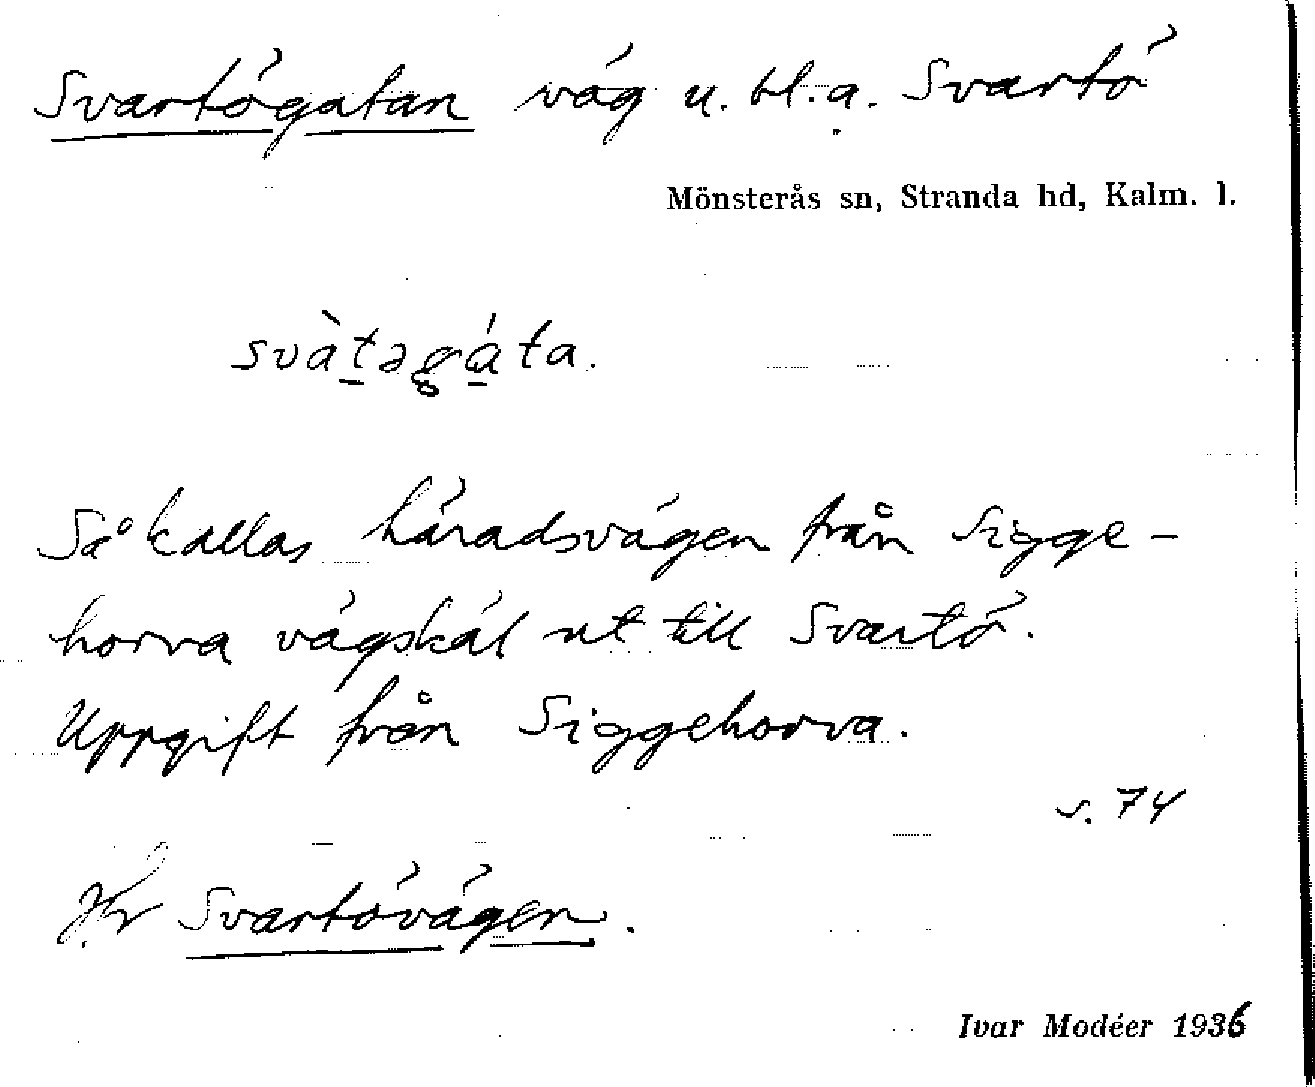 Svartögatan väg u. bl.a. Svartö
Mönsterås sn, Stranda hd, Kalm. l.
svàtəgáta.
Så kallas häradsvägen från Sigge-
horva vägskäl ut till Svartö.
Uppgift från Siggehorva.
s. 74
Jfr Svartövägen.
Ivar Modéer 1936